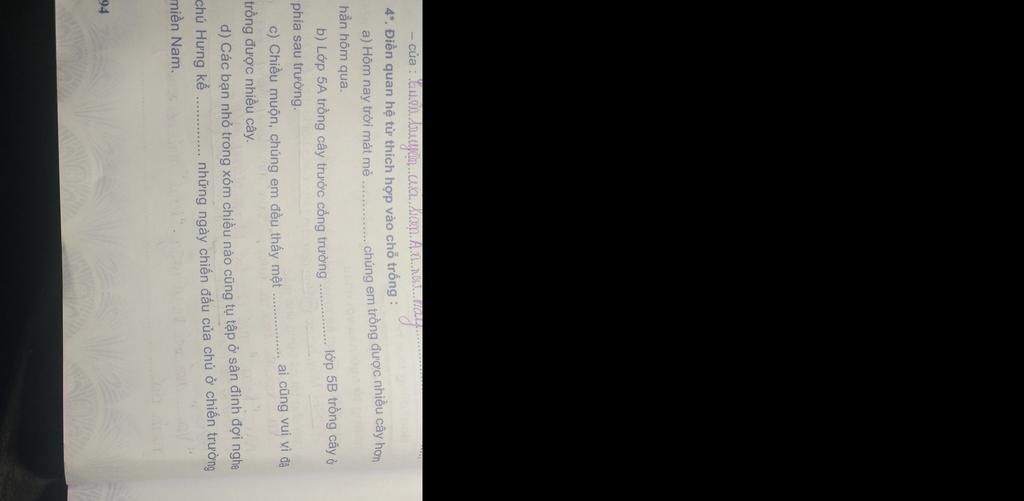 – của : Cuốn truyện của bạn An rất hay
4*. Điền quan hệ từ thích hợp vào chỗ trống :
a) Hôm nay trời mát mẻ ............... chúng em trồng được nhiều cây hơn
hẳn hôm qua.
b) Lớp 5A trồng cây trước cổng trường ............... lớp 5B trồng cây ở
phía sau trường.
c) Chiều muộn, chúng em đều thấy mệt ............... ai cũng vui vì đã
trồng được nhiều cây.
d) Các bạn nhỏ trong xóm chiều nào cũng tụ tập ở sân đình đợi nghe
chú Hưng kể ............... những ngày chiến đấu của chú ở chiến trường
miền Nam.
94